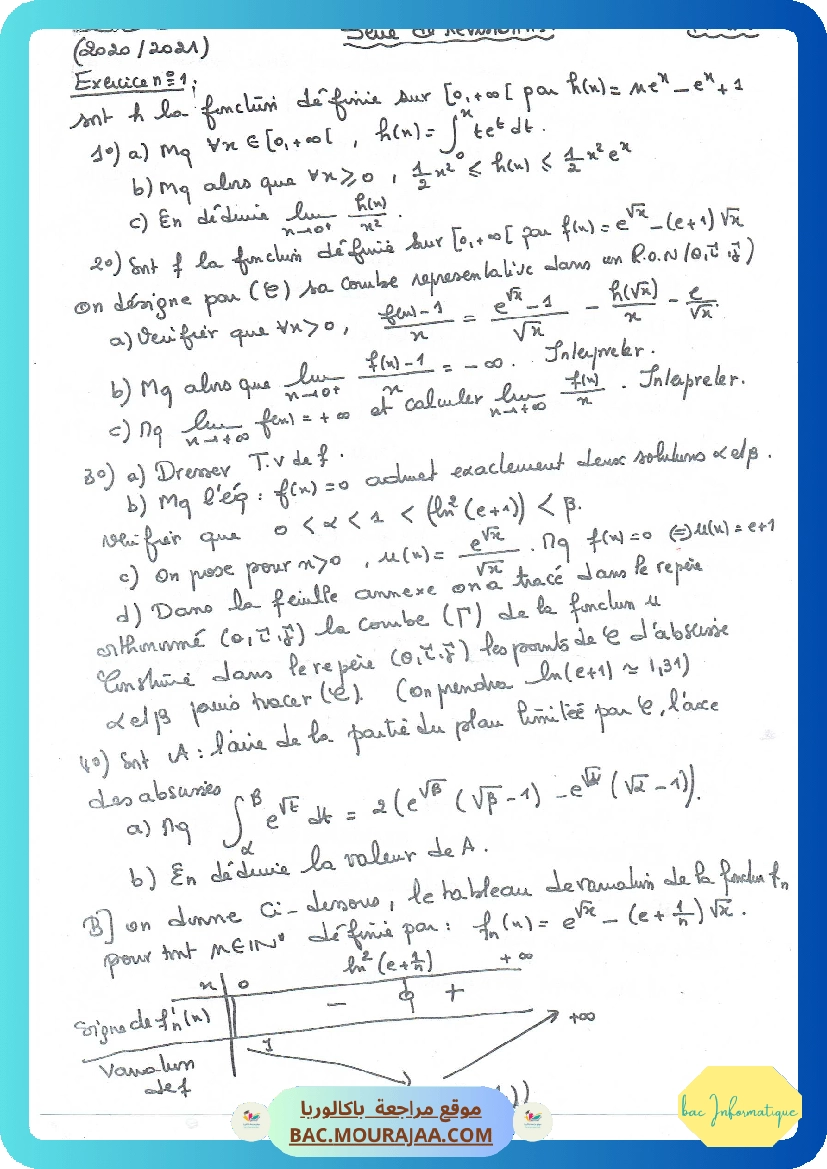 (2020/2021)
Série de Révision
Exercice n°1 :
soit h la fonction définie sur [0,+∞[ par h(x) = xe^x - e^x + 1
1°) a) Mq ∀x ∈ [0,+∞[ , h(x) = ∫_0^x te^t dt.
b) Mq alors que ∀x ⩾ 0 , 1/2 x² ⩽ h(x) ⩽ 1/2 x² e^x
c) En déduire lim_{x→0+} h(x)/x².
2°) Soit f la fonction définie sur [0,+∞[ par f(x) = e^√x - (e+1)√x
on désigne par (C) sa courbe representative dans un R.O.N (O,i,j)
a) Verifier que ∀x>0, (f(x)-1)/x = (e^√x - 1)/√x - h(√x)/x - e/√x.
b) Mq alors que lim_{x→0+} (f(x)-1)/x = -∞. Interpreter.
c) Mq lim_{x→+∞} f(x) = +∞ et calculer lim_{x→+∞} f(x)/x. Interpreter.
3°) a) Dresser T.V de f.
b) Mq l'éq : f(x) = 0 admet exactement deux solutions α et β.
Verifier que 0 < α < 1 < (ln²(e+1)) < β.
c) On pose pour x>0, u(x) = e^√x/√x. Mq f(x)=0 ⇔ u(x) = e+1
d) Dans la feuille annexe on a tracé dans le repère
orthonormé (O,i,j) la courbe (Γ) de la fonction u
Construire dans le repère (O,i,j) les points de C d'abscisse
α et β puis tracer (C). (On prendra ln(e+1) ≃ 1,31)
4°) Soit A : l'aire de la partie du plan limitée par C, l'axe
des abscisses
a) Mq ∫_α^β e^√t dt = 2(e^√β (√β - 1) - e^√α (√α - 1)).
b) En déduire la valeur de A.
B] on donne ci-dessous, le tableau de variation de la fonction f_n
pour tout n∈IN* définie par : f_n(x) = e^√x - (e + 1/n)√x.
x 0 ln²(e+1/n) +∞
Signe de f'_n(x) - 0 +
Variation de f 1 +∞
))
موقع مراجعة باكالوريا
BAC.MOURAJAA.COM
bac Informatique